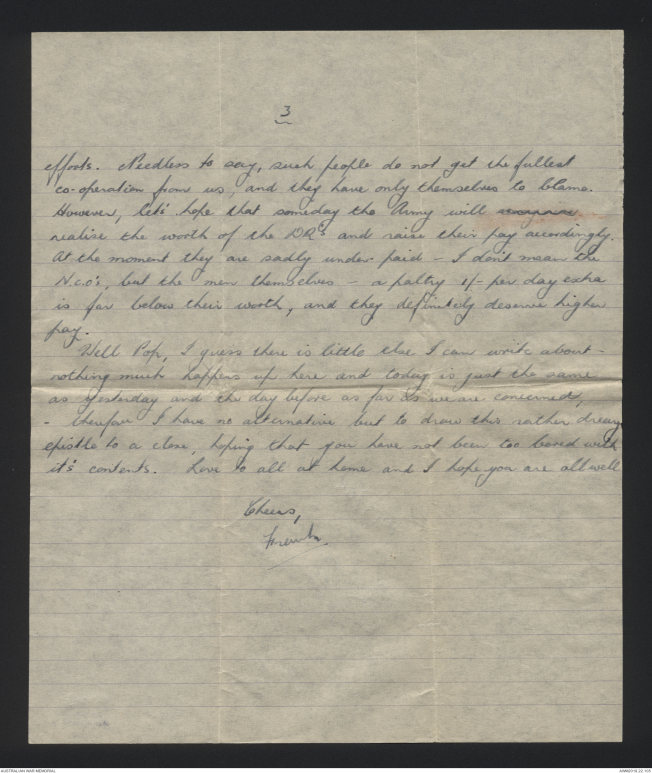 3
efforts. Needless to say, such people do not get the fullest
co-operation from us, and they have only themselves to blame.
However, let's hope that someday the Army will
realise the worth of the DR's and raise their pay accordingly.
At the moment they are sadly under-paid - I don't mean the
N.c.o's, but the men themselves - a paltry 1/- per day extra
is far below their worth, and they definitely deserve higher
pay.
Well Pop, I guess there is little else I can write about -
nothing much happens up here and today is just the same
as yesterday and the day before as far as we are concerned,
- therefore I have no alternative but to draw this rather dreary
epistle to a close, hoping that you have not been too bored with
it's contents. Love to all at home and I hope you are all well
Cheers,
AUSTRALIAN WAR MEMORIAL